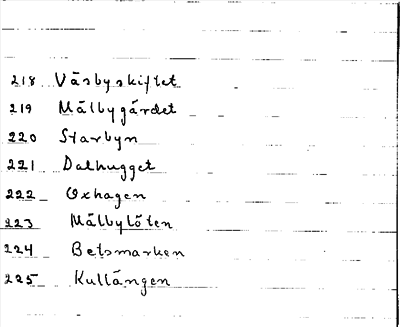 218 Väsbyskiftet
219 Målbygärdet
220 Starbyn
221 Dalhugget
222 Oxhagen
223 Målbylöten
224 Betsmarken
225 Kullängen